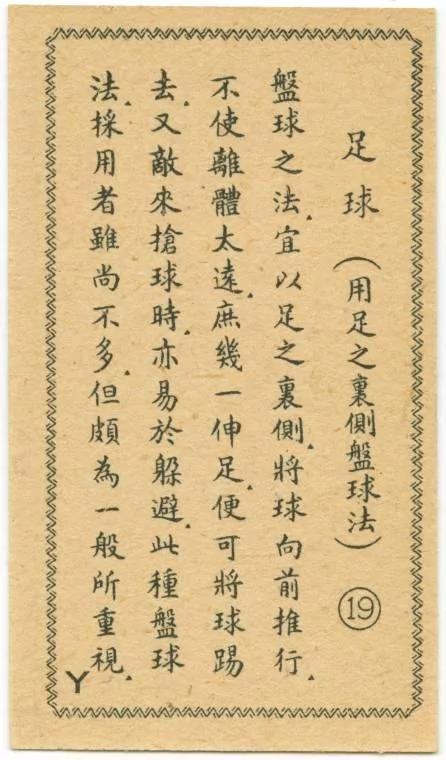 足球（用足之裏側盤球法）⑲
盤球之法．宜以足之裏側．將球向前推行．
不使離體太遠．庶幾一伸足．便可將球踢
去．又敵來搶球時．亦易於躲避．此種盤球
法．採用者雖尚不多．但頗為一般所重視．
Y